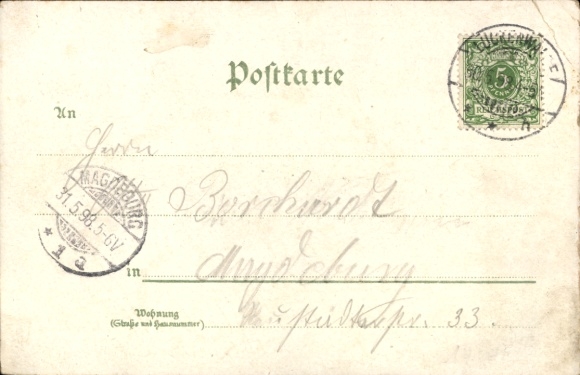 Postkarte
An
Herrn
Borchardt
in Magdeburg
Wohnung
(Straße und Hausnummer)
33.
MAGDEBURG
31.5.98.5-6V
* 1 a
LUCKENWALDE
5
REICHSPOST
* * n